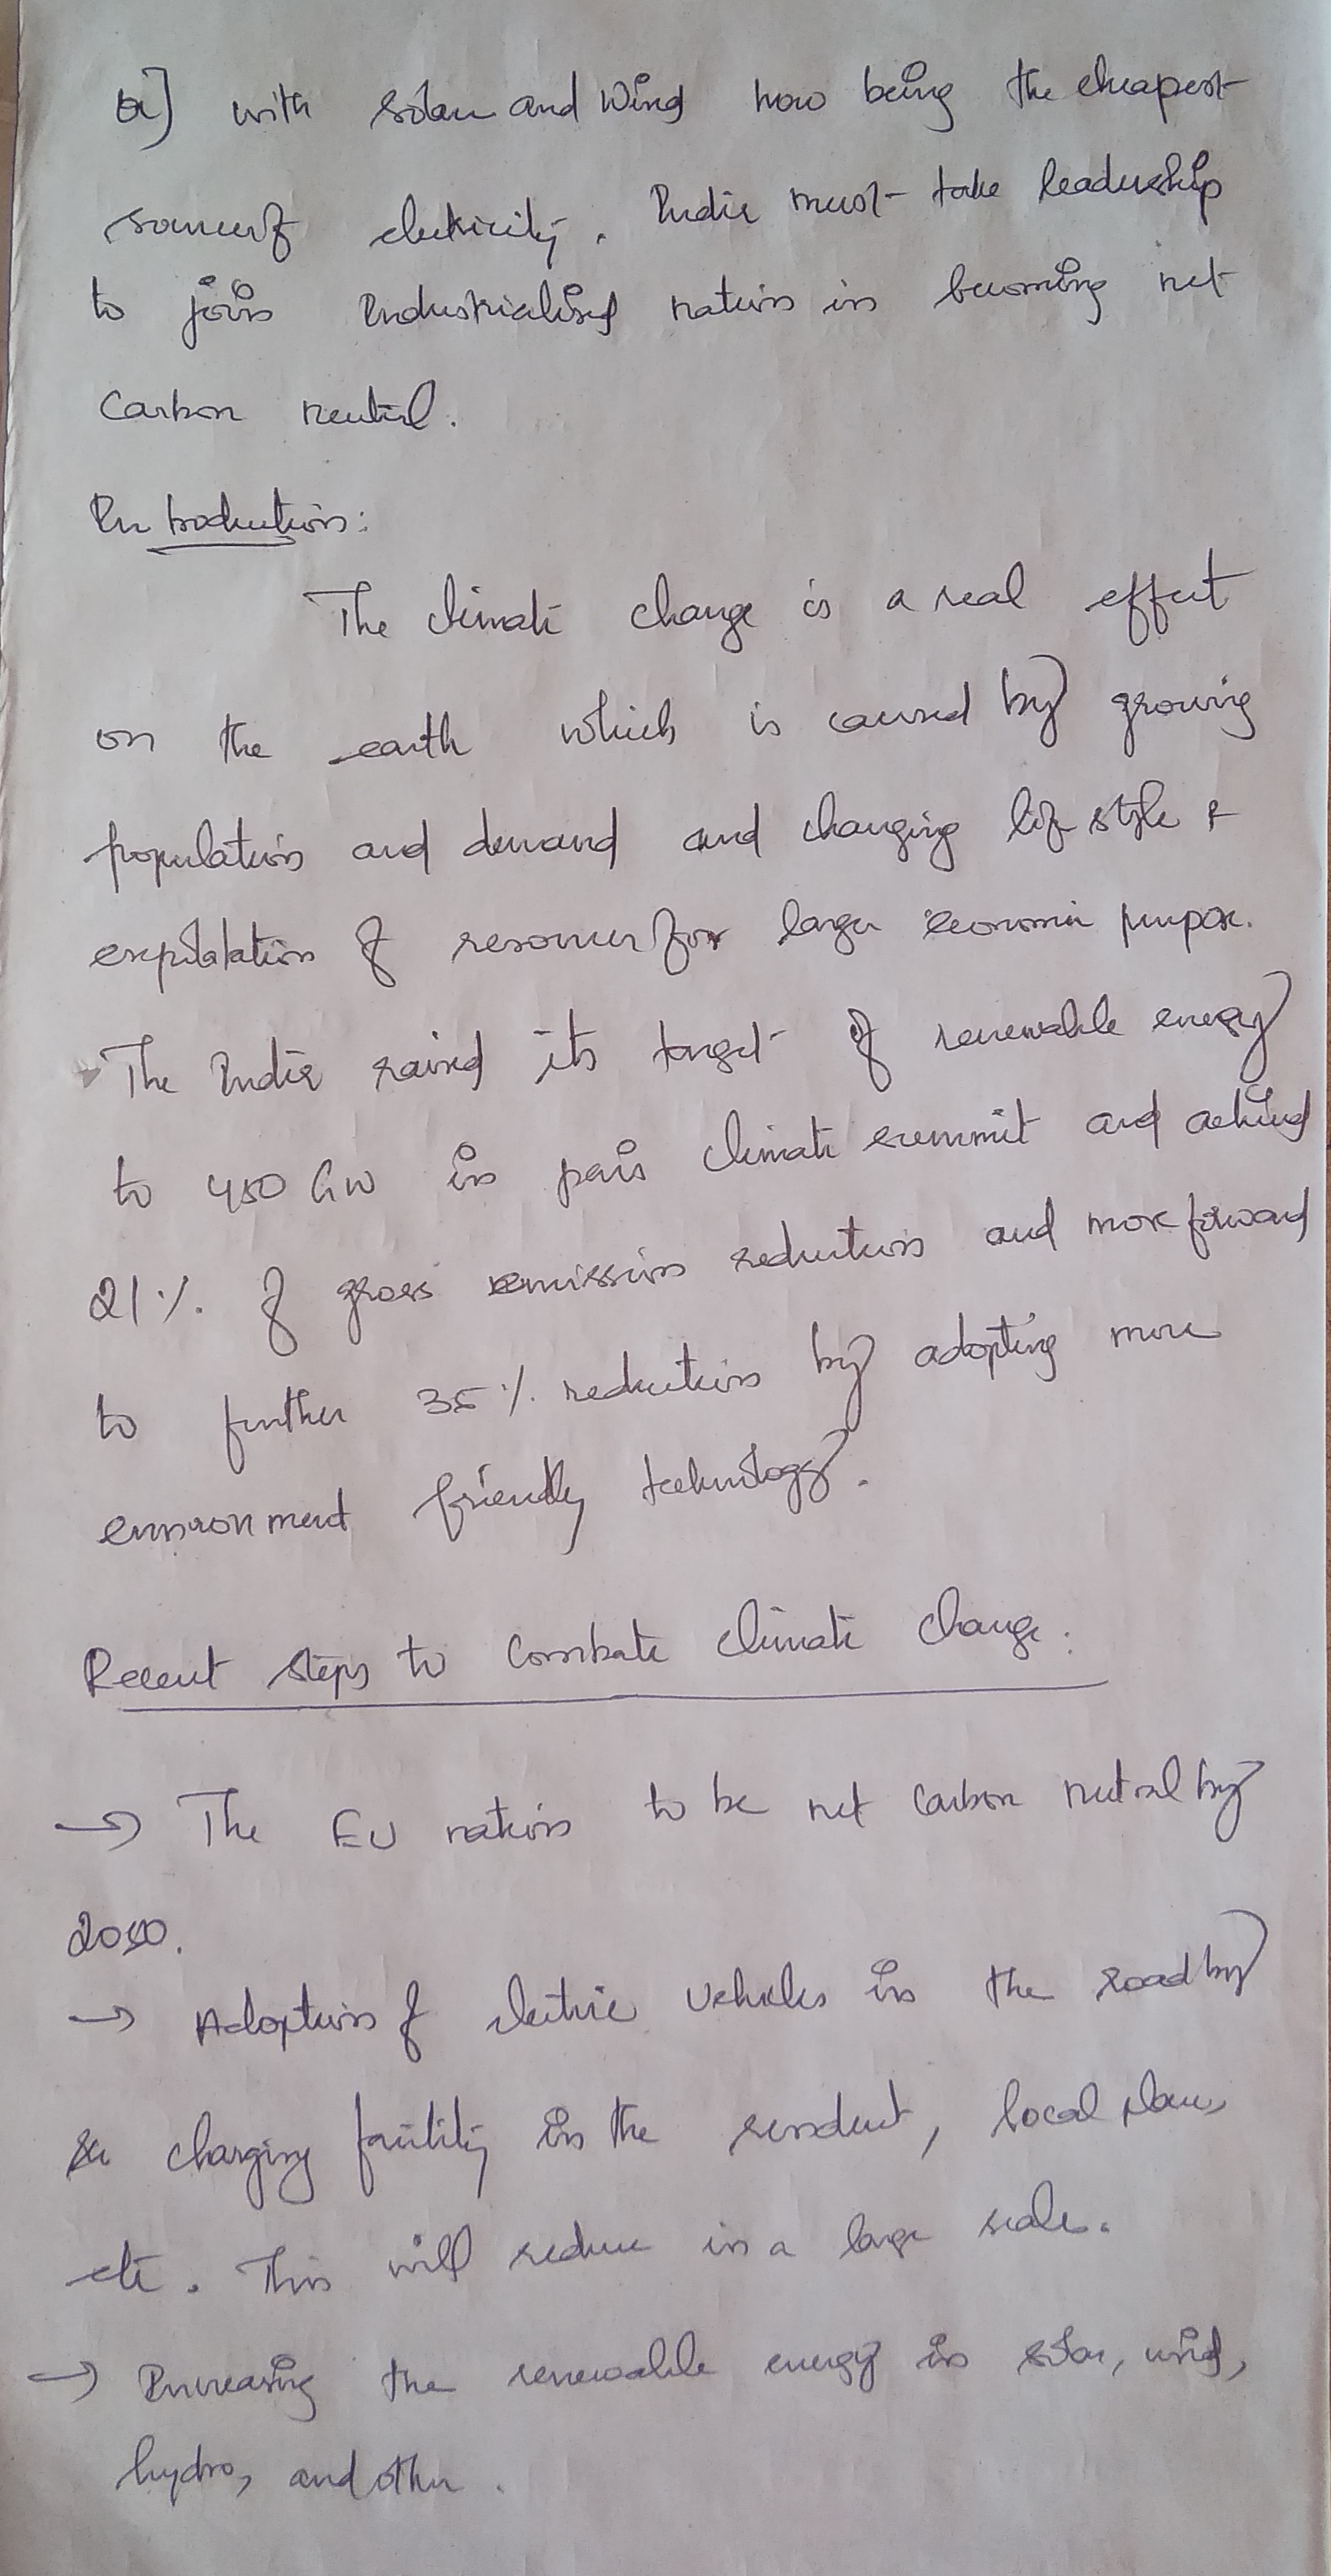 Q] with solar and Wind now being the cheapest
source of electricity. India must take leadership
to join Industrialised nation in becoming net
Carbon neutral.
Introduction:
The climate change is a real effect
on the earth which is caused by growing
population and demand and changing life style &
exploitation of resource for larger economic purpose.
The India raised its target of renewable energy
to 450 GW in paris climate summit and achieved
21%. of gross emission reduction and more forward
to further 35%. reduction by adopting more
environment friendly technology.
Recent steps to Combate climate change:
→ The EU nation to be net carbon neutral by
2050.
→ Adoption of electric vehicles in the road by
charging facility in the resident, local place,
etc. This will reduce in a large scale.
→ Increasing the renewable energy in solar, wind,
hydro, and other.